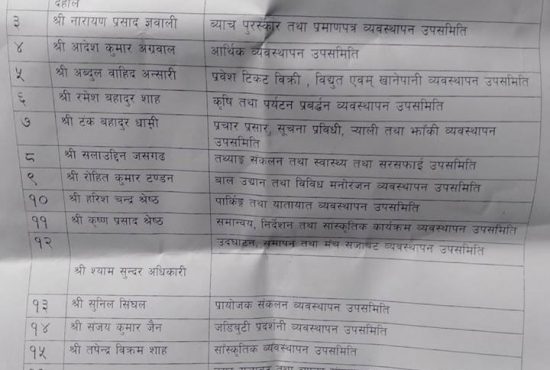 दाहाल
३ श्री नारायण प्रसाद ज्ञवाली ब्याच पुरस्कार तथा प्रमाणपत्र व्यवस्थापन उपसमिति
४ श्री आदेश कुमार अग्रवाल आर्थिक व्यवस्थापन उपसमिति
५ श्री अब्दुल वाहिद अन्सारी प्रवेश टिकट बिक्री , विद्युत एवम् खानेपानी व्यवस्थापन उपसमिति
६ श्री रमेश बहादुर शाह कृषि तथा पर्यटन प्रबर्द्धन व्यवस्थापन उपसमिति
७ श्री टंक बहादुर धामी प्रचार प्रसार, सूचना प्रविधी, र्‍याली तथा झाँकी व्यवस्थापन
उपसमिति
८ श्री सलाउद्दिन जसगढ तथ्याङ्क संकलन तथा स्वास्थ्य तथा सरसफाई उपसमिति
९ श्री रोहित कुमार टण्डन बाल उद्यान तथा विविध मनोरंजन व्यवस्थापन उपसमिति
१० श्री हरिश चन्द्र श्रेष्ठ पार्किङ्ग तथा यातायात व्यवस्थापन उपसमिति
११ श्री कृष्ण प्रसाद श्रेष्ठ समान्वय, निर्देशन तथा सांस्कृतिक कार्यक्रम व्यवस्थापन उपसमिति
१२ उदघाटन, समापन तथा मंच सजावट व्यवस्थापन उपसमिति
श्री श्याम सुन्दर अधिकारी
१३ श्री सुनिल सिंघल प्रायोजक संकलन व्यवस्थापन उपसमिति
१४ श्री संजय कुमार जैन जडिबुटी प्रदर्शनी व्यवस्थापन उपसमिति
१५ श्री तपेन्द्र विक्रम शाह सांस्कृतिक व्यवस्थापन उपसमिति